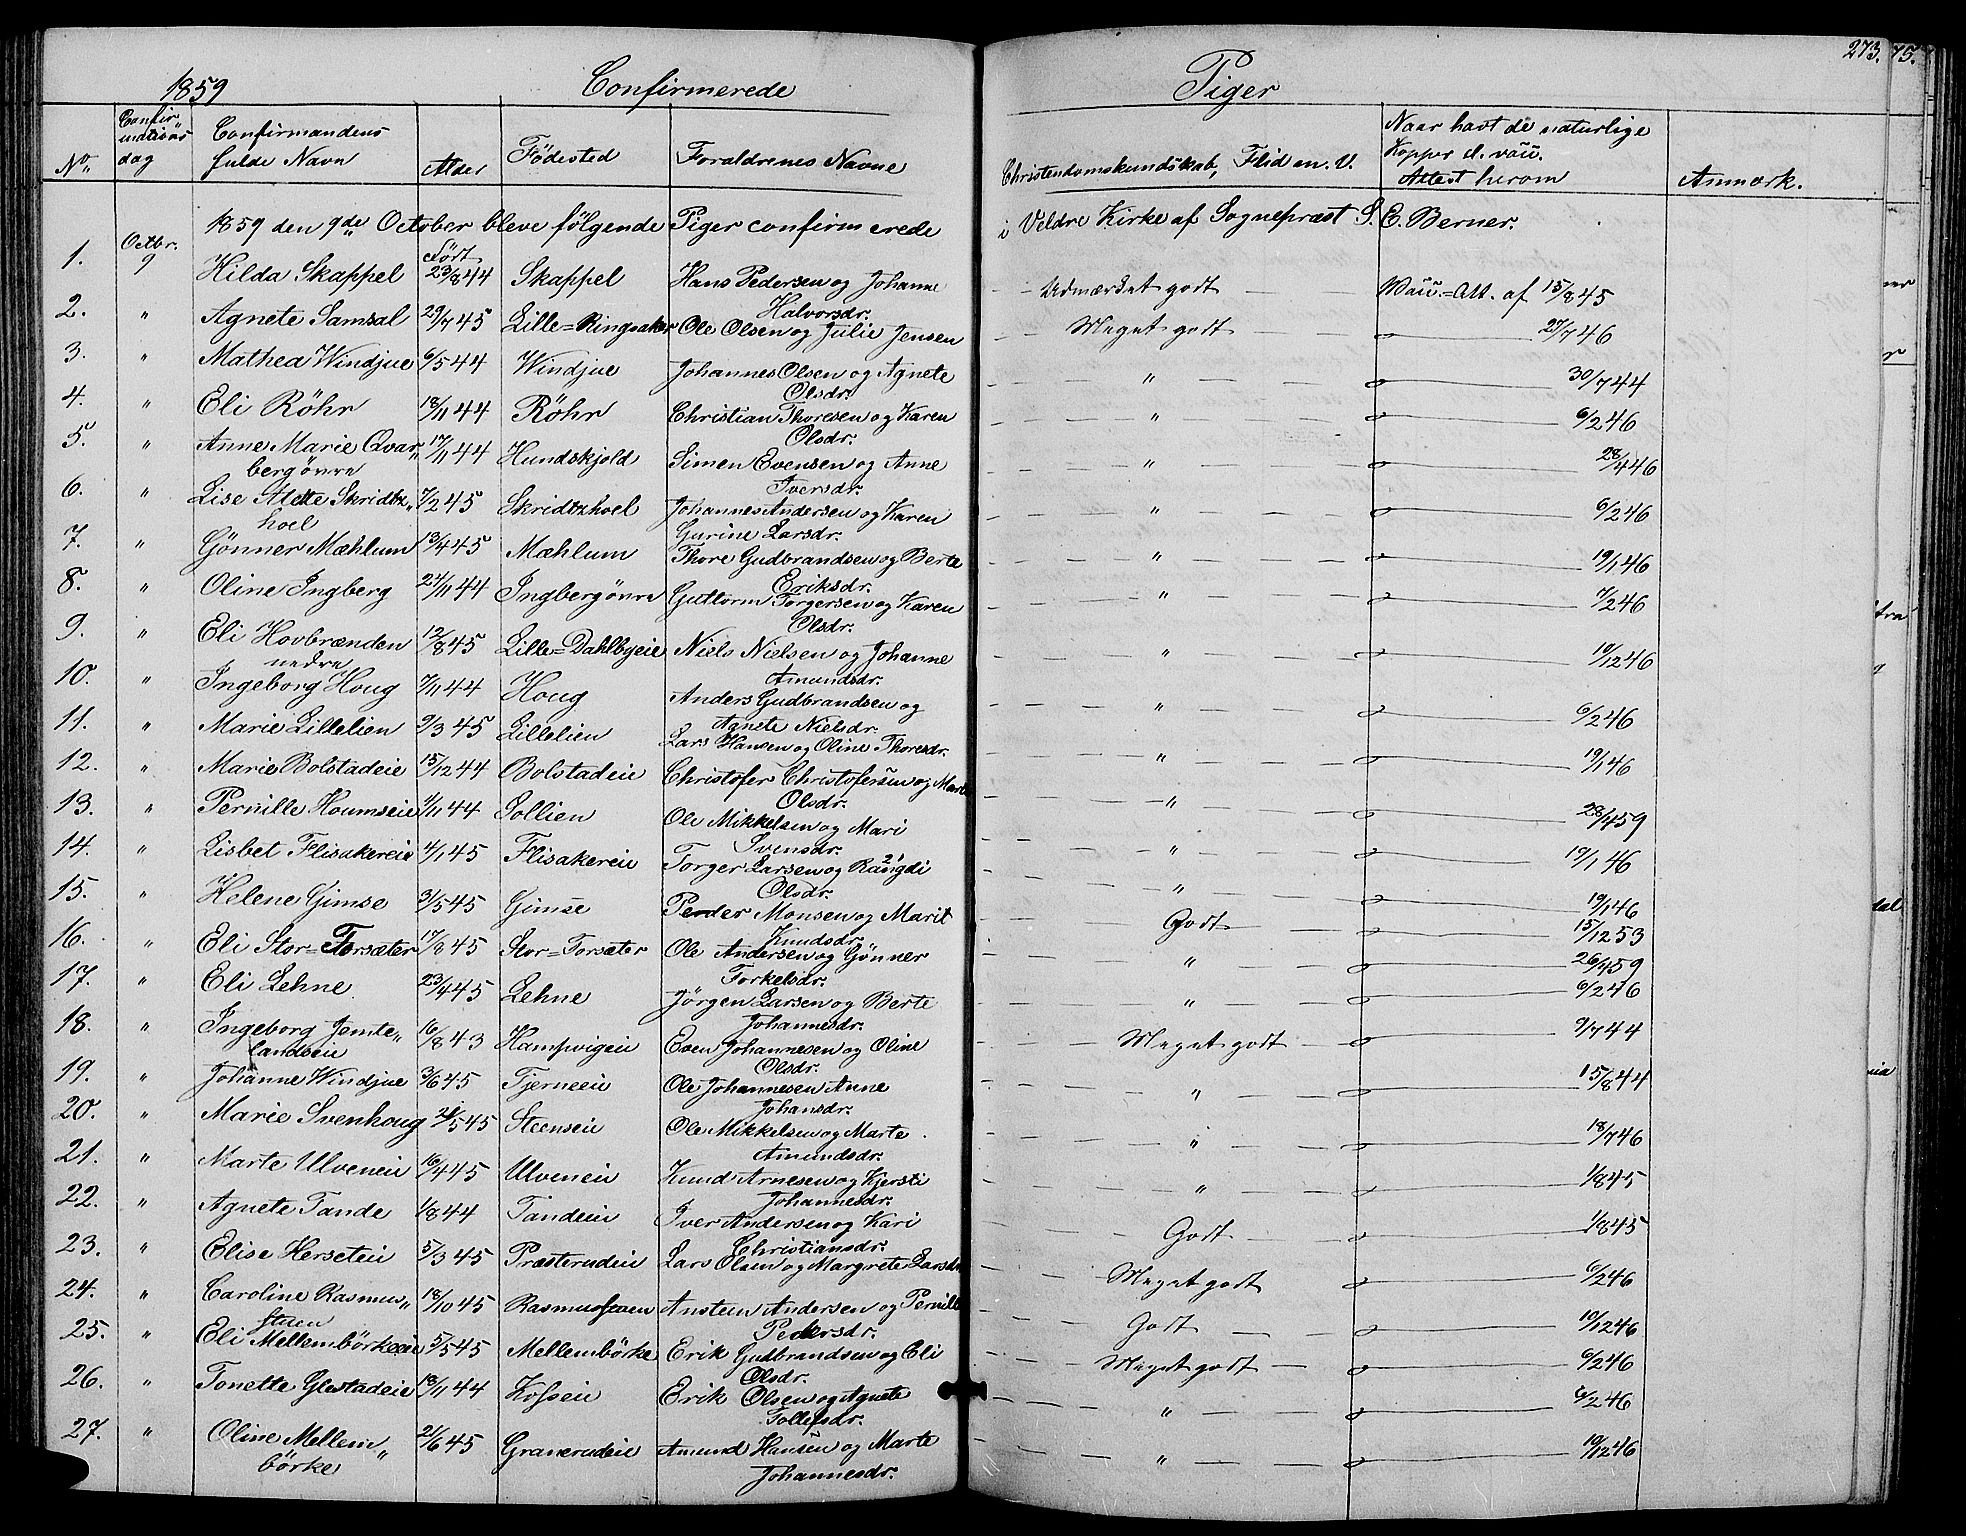 1859 Confirmerede Piger 273. 75.
No. Confirmations dag Confirmandens fulde Navn Alder Födested Foraldrenes Navne Christendomskundskab, Flid en. V. Naar havt de naturlige Kopper el. vac. Attest herom Anmærk.
1859 den 9de October bleve følgende Piger confirmerede i Veldre Kirke af Sognepræst S. E. Berner.
1. Octbr. 9 Hilda Skappel Födt 23/8 44 Skappel Hans Pedersen og Johanne Halvorsdr. Udmærket godt Att. af 15/8 45
2. " Agnete Samsal 29/7 45 Lille=Ringsaker Ole Olsen og Julie Jensen Meget godt 27/7 46
3. " Mathea Windjue 6/5 44 Windjue Johannes Olsen og Agnete Olsdr. " 30/7 44
4. " Eli Röhr 18/11 44 Röhr Christian Thoresen og Karen Olsdr. " 6/2 46
5. " Anne Marie Qvarbergövre 17/11 44 Hundskjold Simen Evensen og Anne Iversdr. " 28/4 46
6. " Lise Alette 7/2 45 Johannes Andersen og Karen Gurine Larsdr. " 6/2 46
7. " Gönner Mæhlum 13/4 45 Mæhlum Thore Gudbrandsen og Berte Eriksdr. " 19/1 46
8. " Oline Ingberg 24/11 44 Ingbergövre Guttorm Torgersen og Karen Olsdr. " 7/2 46
9. " Eli Hovbrænden nedre 12/8 45 Lille=Dahlbyeie Niels Nielsen og Johanne Amundsdr. " 10/12 46
10. " Ingeborg Houg 7/11 44 Houg Anders Gudbrandsen og Agnete Nielsdr. " 6/2 46
11. " Marie Lillelien 9/3 45 Lillelien Lars Hansen og Oline Thoresdr. " 19/1 46
12. " Marie Bolstadeie 15/12 44 Bolstadeie Christofer Christofersen og Marte Olsdr. " 28/4 59
13. " Pernille Houmseie 4/11 44 Sollien Ole Mikkelsen og Mari Svensdr. " 19/1 46
14. " Lisbet Flisakereie 4/1 45 Flisakereie Torger Larsen og Olsdr. " 19/1 46
15. " Helene Gimse 3/5 45 Gimse Peder Monsen og Marit Knudsdr. Godt 15/12 53
16. " Eli Stor=Torsæter 17/8 45 Stor=Torsæter Ole Andersen og Gönner Torkelsdr. " 26/4 59
17. " Eli Lehne 23/4 45 Lehne Jörgen Larsen og Berte Johannesdr. " 6/2 46
18. " Ingeborg Jemtelandseie 16/8 43 Kampvigeie Even Johannesen og Oline Olsdr. Meget godt 9/7 44
19. " Johanne Windjue 3/6 45 Tjerneeie Ole Johannesen Anne Johansdr. " 15/8 44
20. " Marie Svenhoug 21/5 45 Steenseie Ole Mikkelsen og Marte Amundsdr. " 18/7 46
21. " Marte Ulveneie 16/4 45 Ulveneie Knud Arnesen og Kjersti Johannesdr. " 1/8 45
22. " Agnete Tande 1/8 44 Tandeeie Iver Andersen og Kari Christiansdr. Godt 1/8 45
23. " Elise Herseteie 5/3 45 Præsterudeie Lars Olsen og Margrete Larsdr. Meget godt 6/2 46
24. " Caroline Rasmusstuen 18/10 45 Rasmusstuen Ansteen Andersen og Pernille Pedersdr. Godt 10/12 46
25. " Eli Mellembörkeeie 5/5 45 Mellembörke Erik Gudbrandsen og Eli Olsdr. Meget godt 6/2 46
26. " Tonette Glestadeie 18/11 44 Kosseie Erik Olsen og Agnete Tollefsdr. " 6/2 46
27. " Oline Mellembörke 21/6 45 Granerudeie Amund Hansen og Marte Johannesdr. " 10/12 46